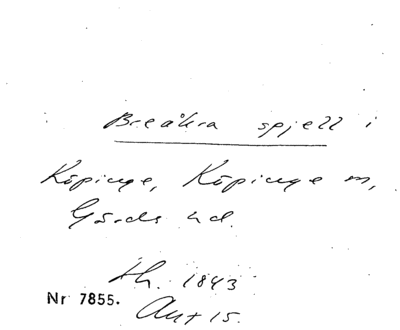 Breåkra spjell i
Köpinge, Köpinge m,
Gärds hd.
th. 1843
Nr 7855.
Ant 15.